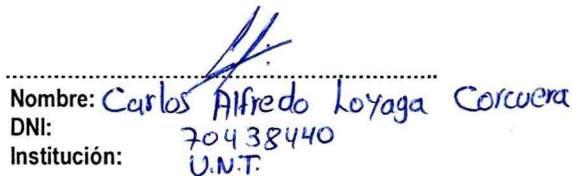 Nombre: Carlos Alfredo Loyaga Corcuera
DNI: 70438440
Institución: U.N.T.